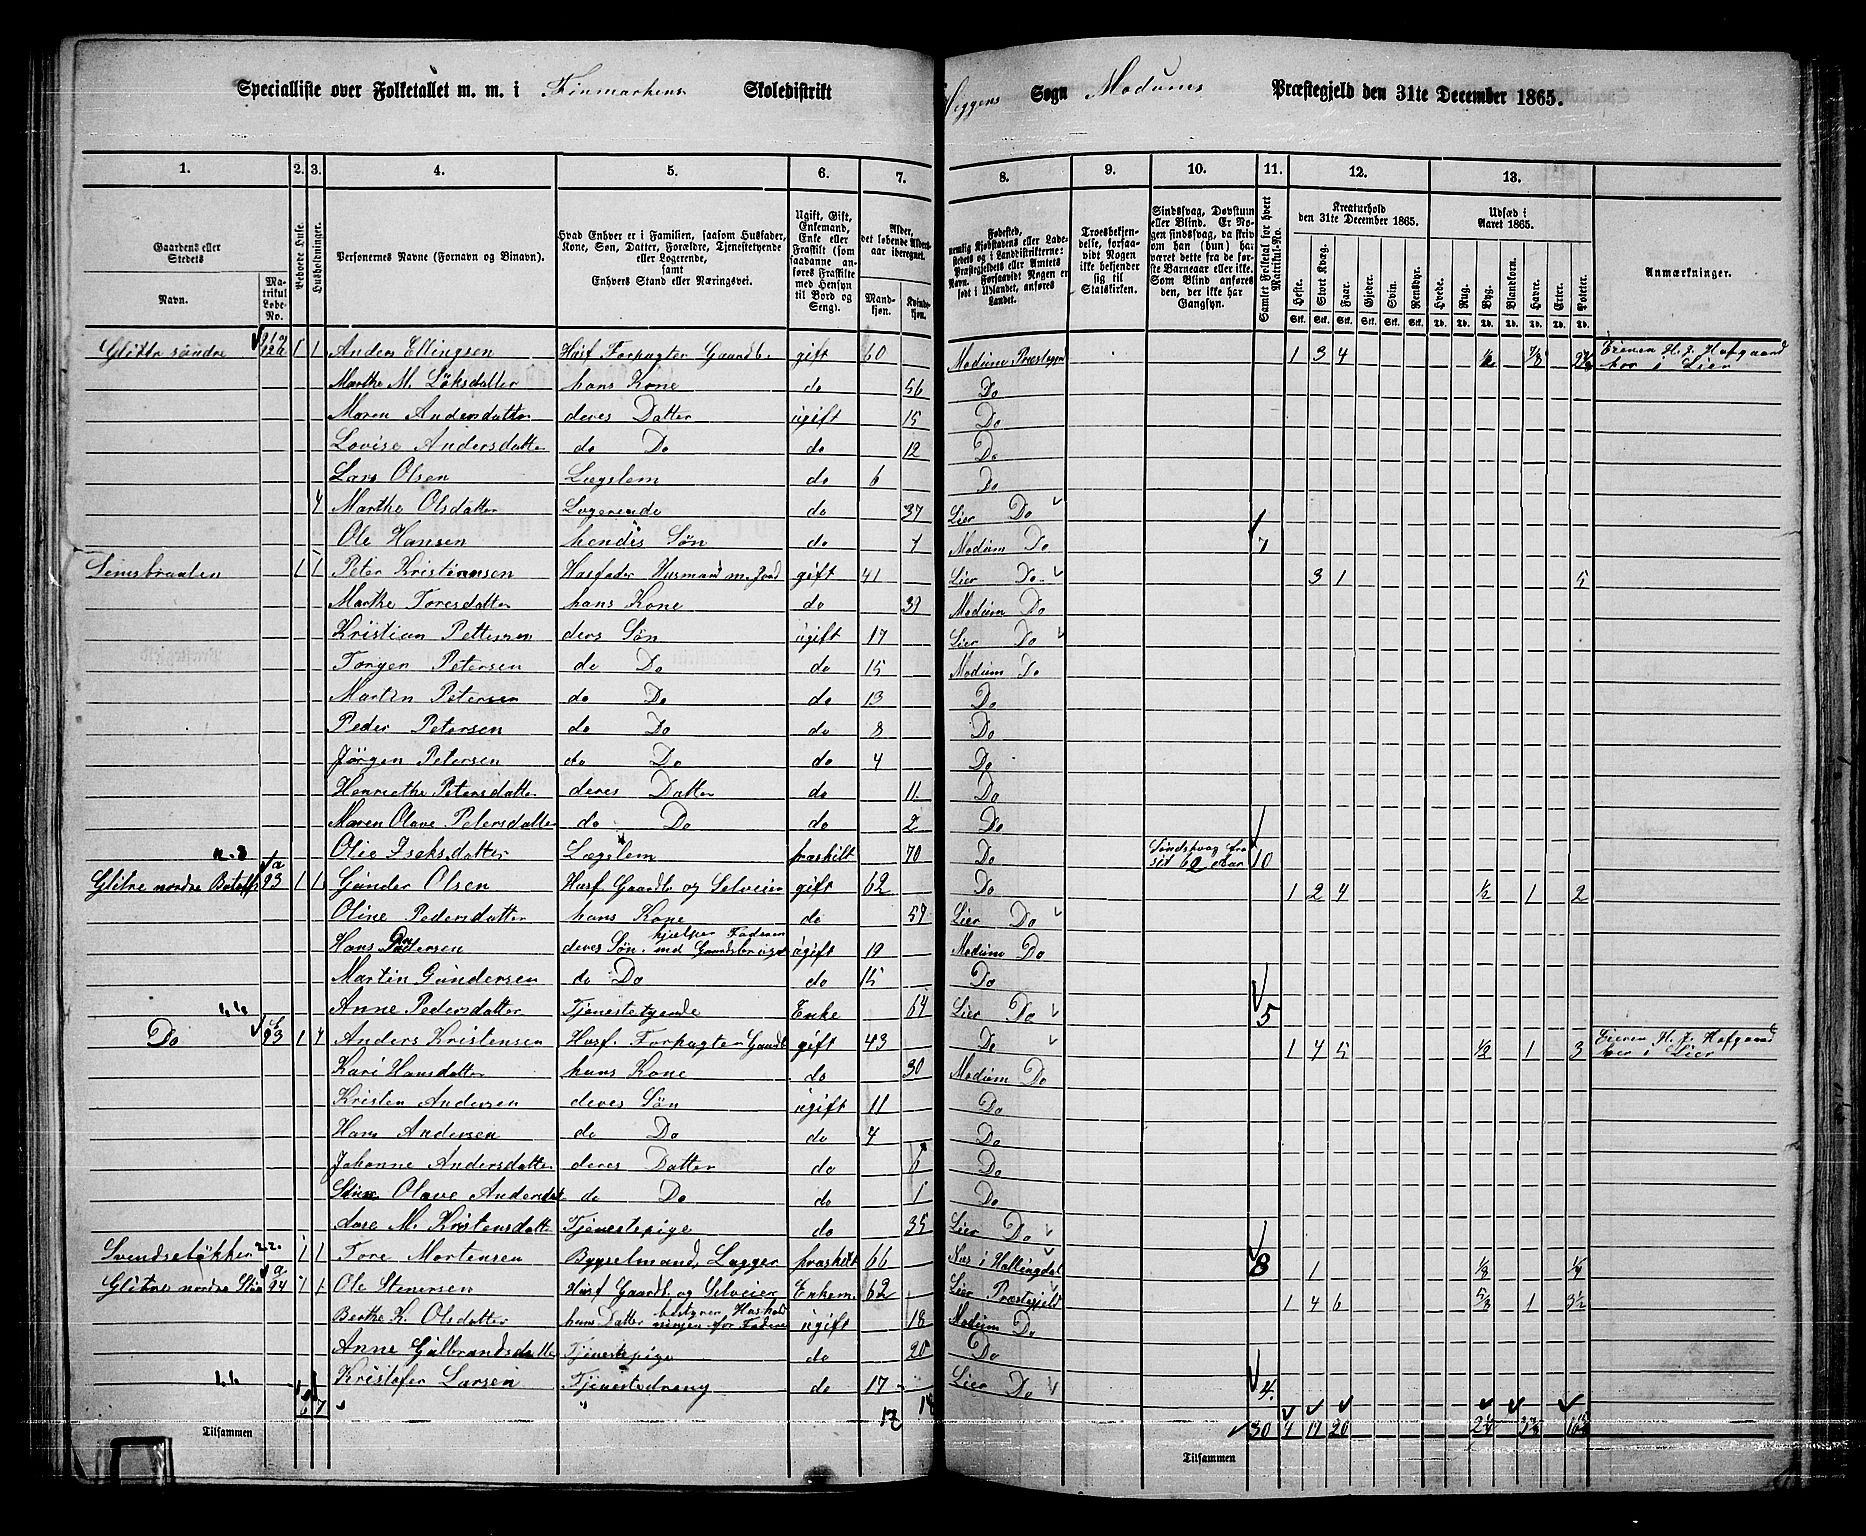 Specialliste over Folketallet m. m. i Finmarkens Skoledistrikt Heggens Sogn Modums Præstegjeld den 31te December 1865.
1. 2. 3. 4. 5. 6. 7. 8. 9. 10. 11. 12. 13.
Gaardens eller Stedets Navn. Matrikul Løbe-No. Beboede Huse. Husholdninger. Personernes Navne (Fornavn og Binavn). Hvad Enhver er i Familien, saasom Husfader, Kone, Søn, Datter, Forældre, Tjenestetyende eller Logerende, samt Enhvers Stand eller Næringsvei. Ugift, Gift, Enkemand, Enke eller Fraskilt (som saadanne anføres Fraskilte med Hensyn til Bord og Seng). Alder, det løbende Aldersaar iberegnet. Mandkjøn. Kvindekjøn.
Fødested, nemlig Kjøbstadens eller Ladestedets og i Landdistrikterne: Præstegjeldets eller Amtets Navn. Forsaavidt Nogen er født i Udlandet, anføres Landet. Troesbekjendelse, forsaavidt Nogen ikke bekjender sig til Statskirken. Sindssvag, Døvstum eller Blind. Er Nogen sindssvag, da skrives om han (hun) har været dette fra de første Barneaar eller ikke. Som Blind anføres den, der ikke har Gangsyn. Samlet Folketal for hvert Matrikul-No.
Kreaturhold den 31te December 1865. Heste. Stort Kvæg. Faar. Gjeder. Svin. Rensdyr. Udsæd i Aaret 1865. Hvede. Rug. Byg. Blandkorn. Havre. Erter. Poteter. Anmærkninger.
Glitre søndre 1 1 Anders Ellingsen Husf Forpagter Gaardb. gift 60 Modums Præstegjeld 1 3 4 Eieren H. J. Hofgaard bor i Lier
Marthe M. hans Kone do 56 Do
Maren Andersdatter deres Datter ugift 15 Do
Lovise Andersdatter do Do do 12 Do
Lars Olsen Lægslem do 6 Do
Marthe Olsdatter Logerende do 37 Lier Do
Ole Hansen hendes Søn do Modum Do 7
1 1 Peter Kristiansen Husfader Husmand m. Jord gift 41 Lier Do 3 1 5
Marthe Toresdatter hans Kone do 39 Modum Do
Kristian Pettersen ders Søn ugift 17 Lier Do
Torger Petersen do Do do 15 Modum Do
Martin Petersen do Do do 13 Do
Peder Petersen do Do do 8 Do
Jørgen Petersen do Do do 4 Do
Henriethe Petersdatter deres Datter do 11 Do
Maren Olave Petersdatter do Do do 2 Do
Olie Isaksdatter Lægslem fraskilt 70 Do Sindssvag fra sit 62 aar 10
Glitre nordre a 93 1 1 Gunder Olsen Husf Gaardb og Selveier gift 62 Do 1 2 4 1/2 1 2
Oline Pedersdatter hans Kone do 57 Lier Do
Hans Gundersen deres Søn hjælper Faderen med Gaardsbruget ugift 19 Modum Do
Martin Gundersen do Do do 15 Do
Anne Pedersdatter Tjenestetyende Enke 64 Lier Do 5
Do b 93 1 1 Anders Kristensen Husf. Forpagter Gaardb gift 43 Do 1 4 5 1/2 1 3 Eieren H. J. Hofgaard bor i Lier
Kari Hansdatter hans Kone do 30 Modum Do
Kristen Andersen deres Søn ugift 11 Do
Hans Andersen do Do do 4 Do
Johanne Andersdatter deres Datter do 6 Do
Olave Andersdat do Do do 1 Do
Aase M. Kristensdatter Tjenestepige do 35 Lier Do
1 1 Tore Mortensen Bygselmand, Lægger fraskilt 66 Næs i Hallingdal 8 1
Glitre nordre a 94 1 1 Ole Stenersen Husf Gaardb. og Selveier Enkem. 62 Lier Præstegjeld 1 4 6 1 3 1/2
Berthe K. Olsdatter hans Datter bestyrer Husholdningen for Faderen ugift 18 Modum Do
Anne Gulbrandsdatter Tjenestepige do 20 Do
Kristofer Larsen Tjenestedreng do 17 Lier Do 4.
6 7 " " 17
Tilsammen Tilsammen 30 4 17 20